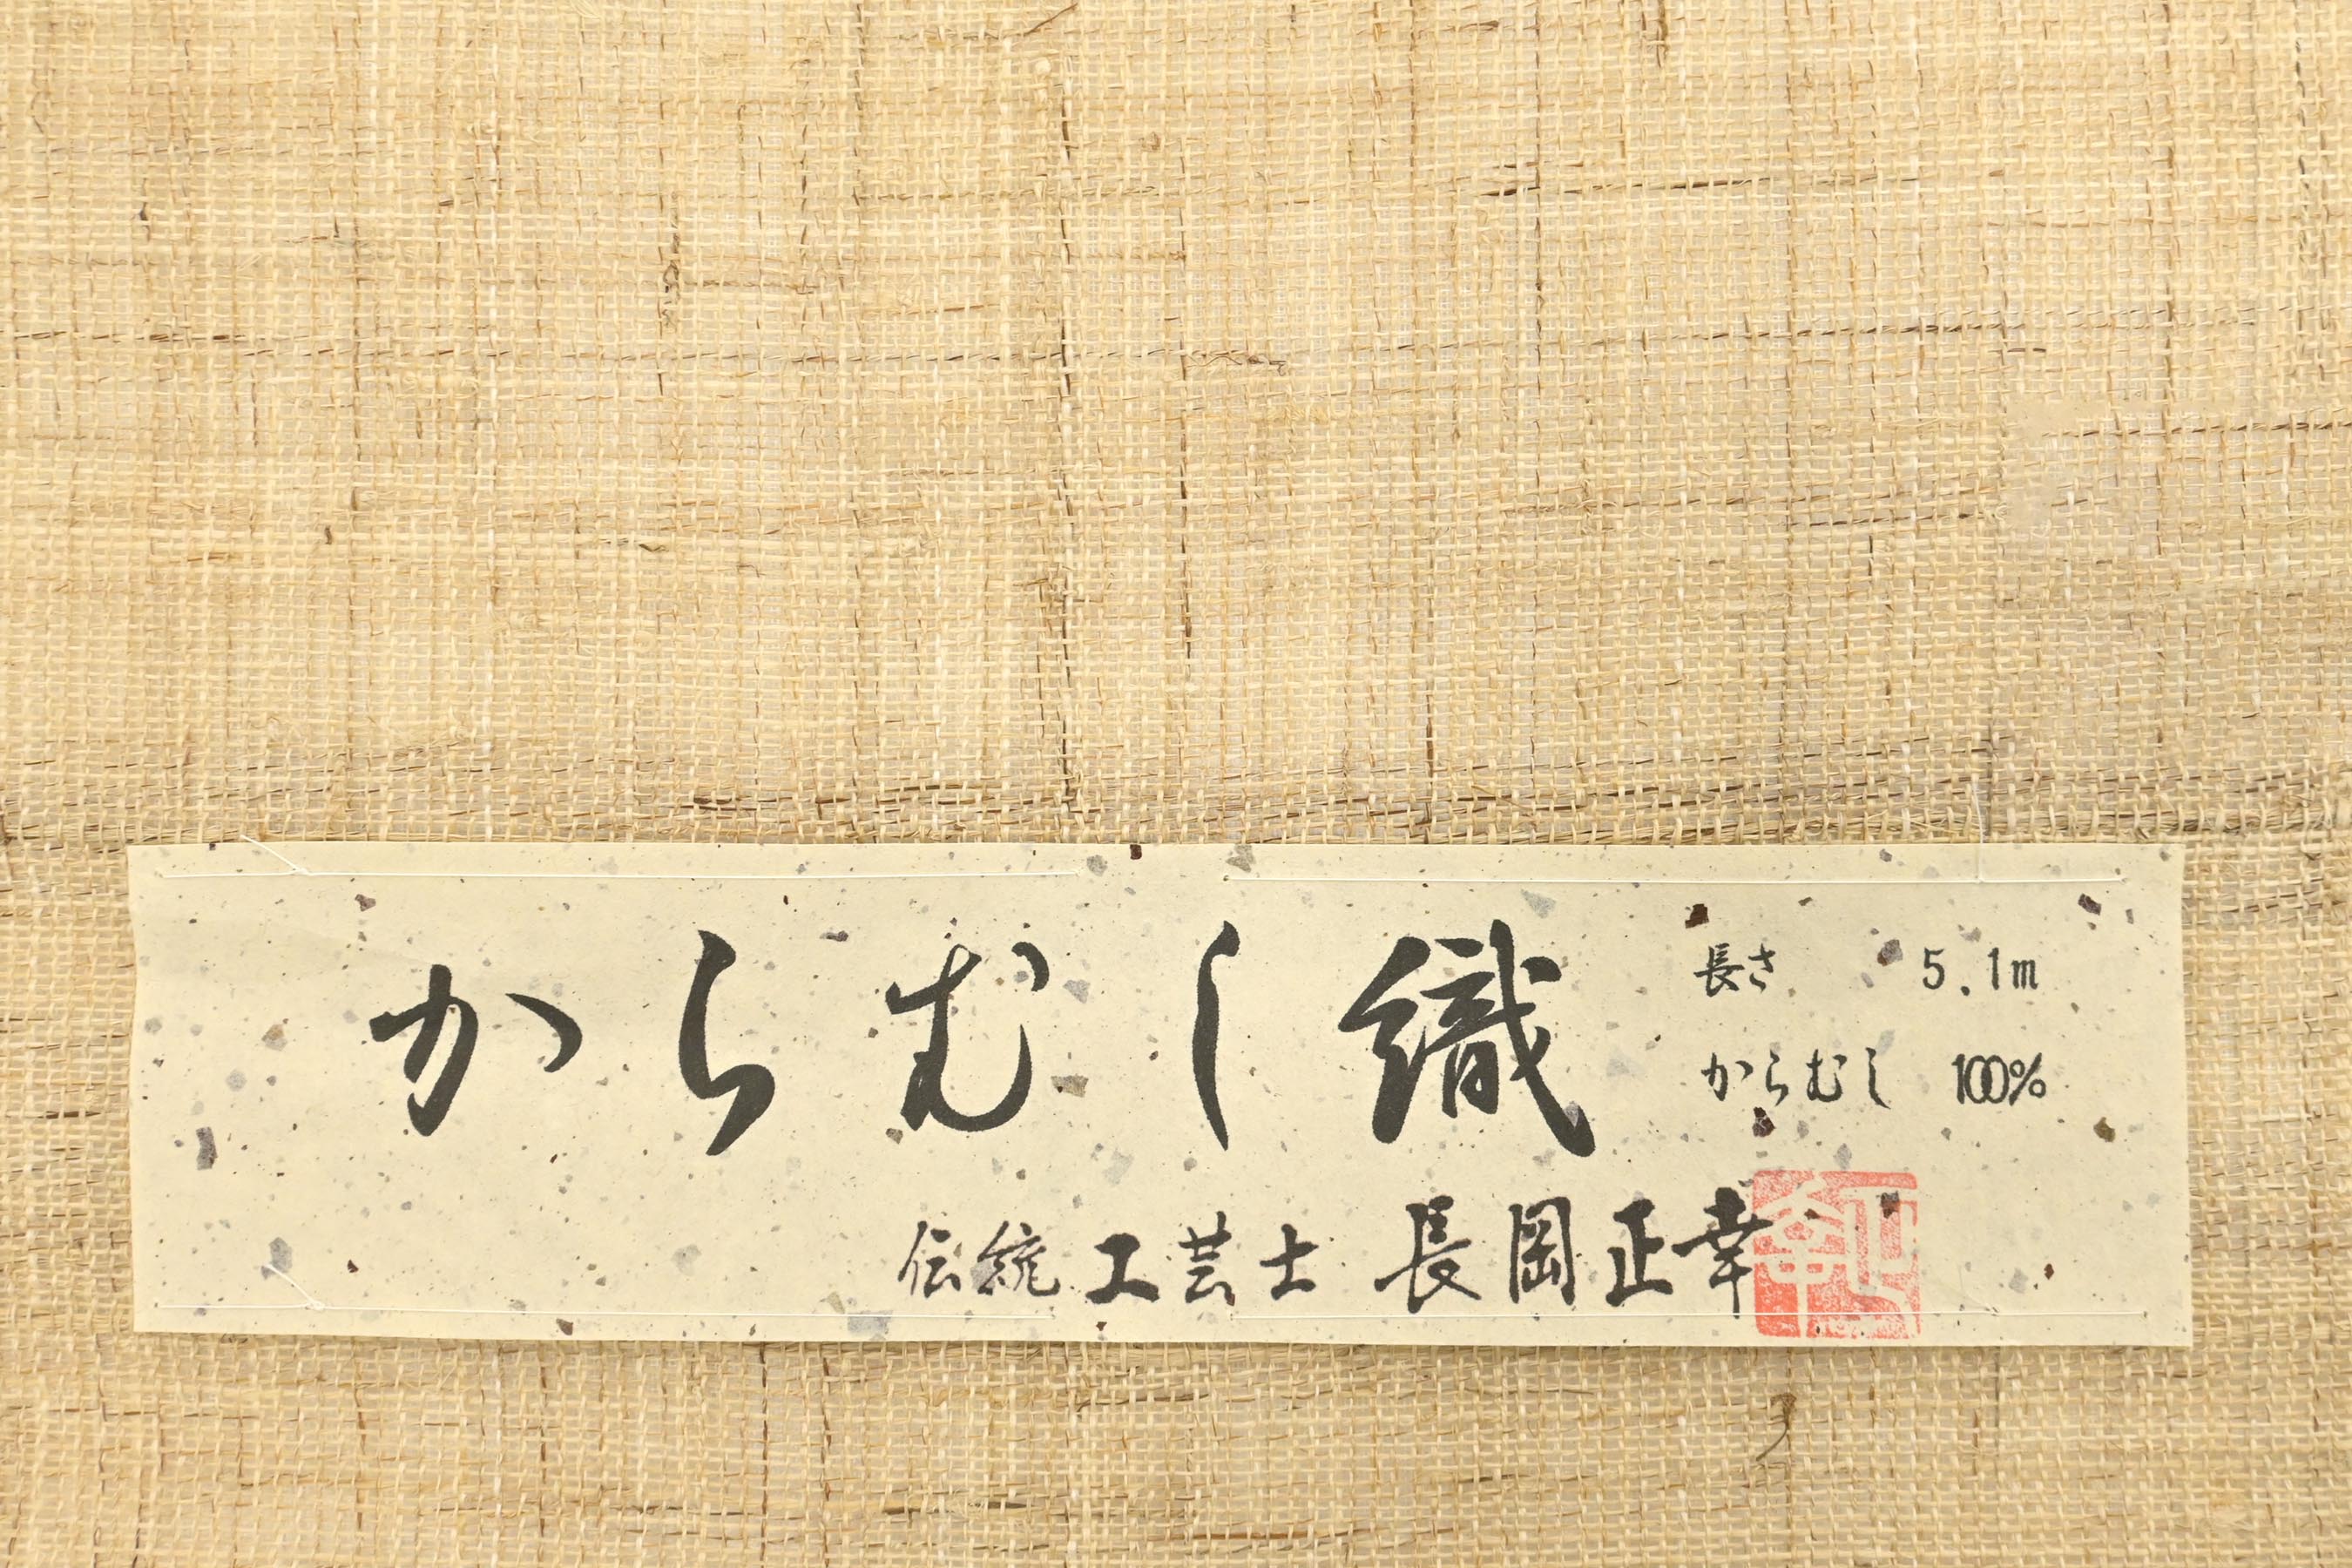 からむし織
長さ 5.1m
からむし 100%
伝統工芸士 長岡正幸
正幸